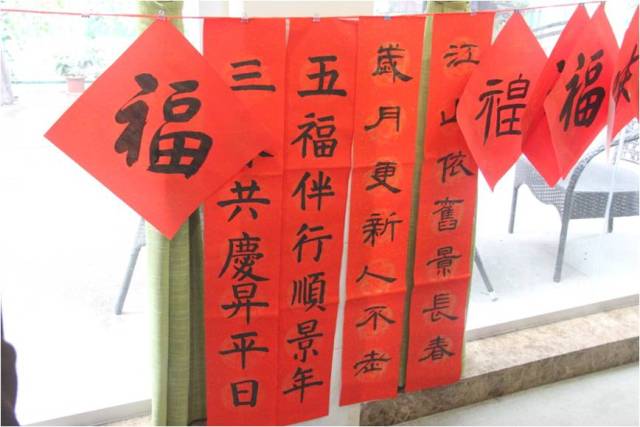 福
三共慶昇平日
五福伴行順景年
歲月更新人不老
江山依舊景長春
福